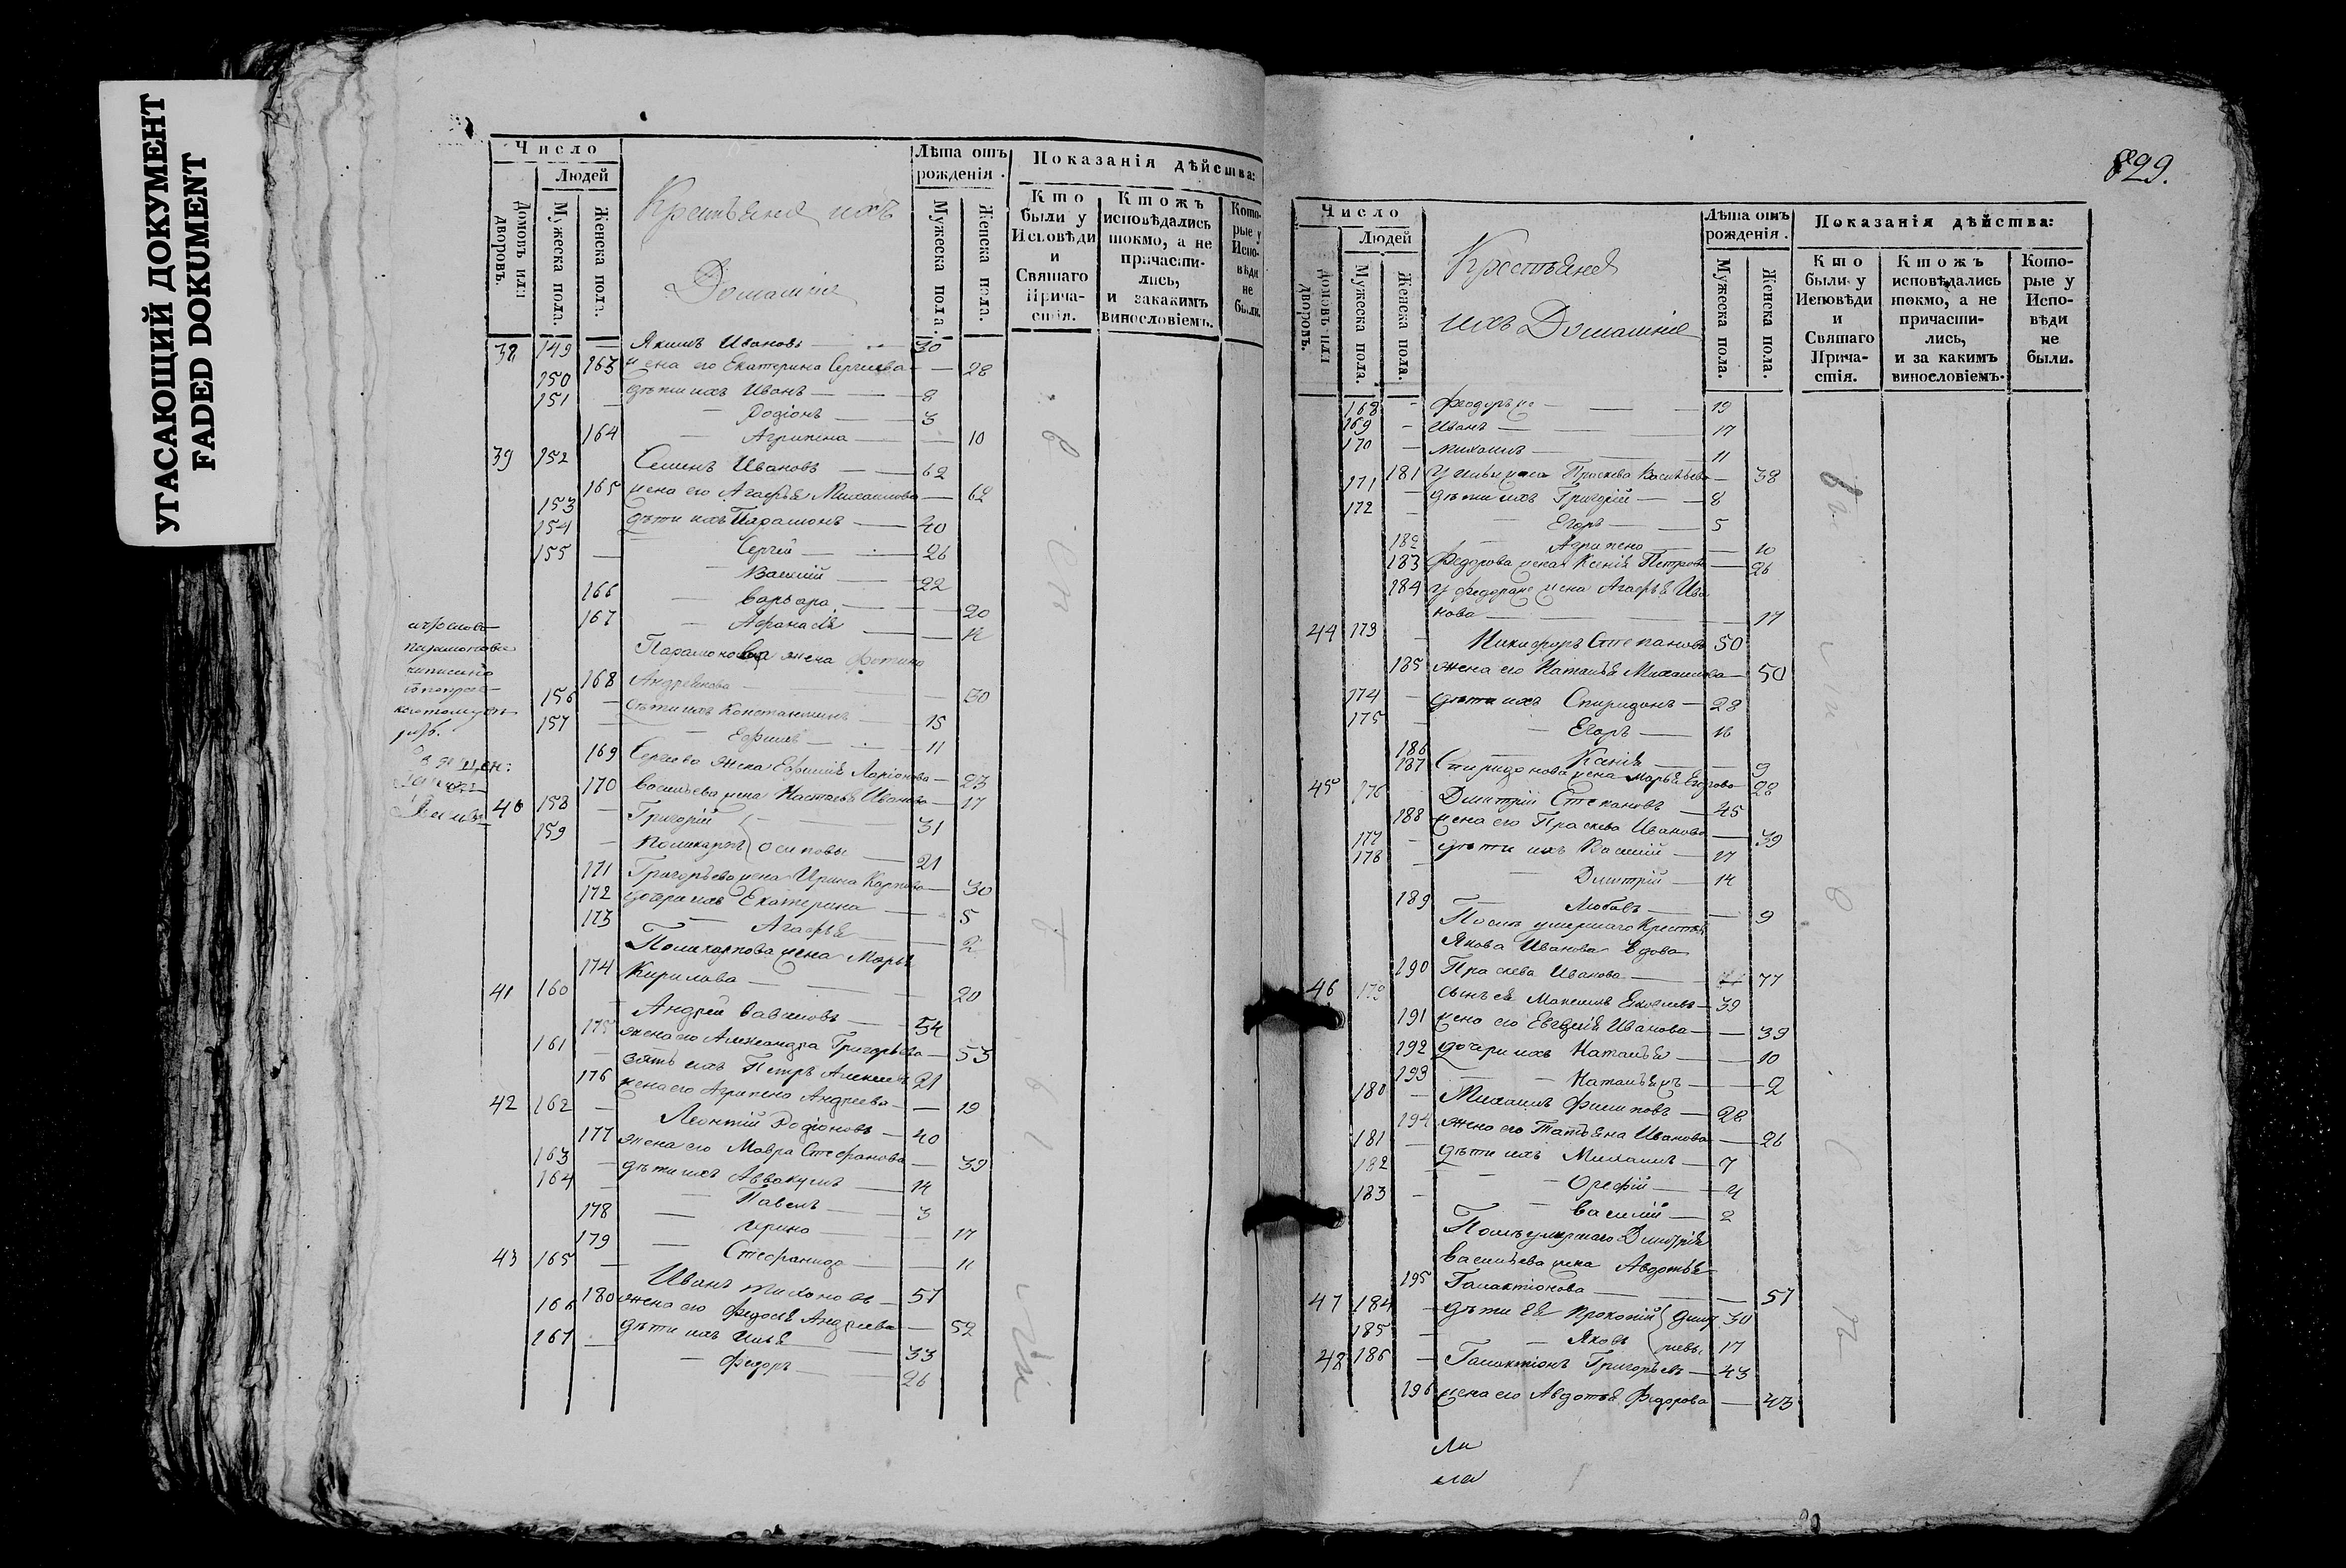 УГАСАЮЩИЙ ДОКУМЕНТ
FADED DOKUMENT
Число
Людей
Домовъ или дворовъ.
Мужеска пола.
Женска пола.
Крестьяне ихъ
Домашніе
Лѣта отъ рожденія.
Мужеска пола.
Женска пола.
Показанія дѣйства:
Кто были у Исповѣди и Святаго Прича- стія.
Ктожъ исповѣдались токмо, а не причасти- лись, и закакимъ винословіемъ.
Кото- рые у Испо- вѣди не были.
38 149 — Якимъ Ивановъ — 30
163 жена его Екатерина Сергиева — 28
150 дѣти ихъ Иванъ — 8
151 — Родіонъ — 3
164 — Агрипена — 10
39 152 Семенъ Ивановъ — 62
165 жена его Агафья Михаилова — 62
153 дѣти ихъ Парамонъ — 40
154 Сергей — 26
155 — Василій — 22
166 — Варвара — 20
167 — Афанасія — 12
Парамонова жена Фотина
168 Андреянова — 30
156 — дѣти ихъ Константинъ — 15
157 — Ефимъ — 11
169 Сергиева жена Ефимія Ларіонова — 23
170 Васильева жена Настасья Иванова — 17
40 158 — Григорій — 31
159 — Поликарпъ Осиповы — 21
171 Григорьева жена Ирина Карпова — 30
172 дочери ихъ Екатерина — 5
173 — Агафья — 2
Поликарпова жена Марья
174 Кирилова — 20
41 160 — Андрей Савиновъ — 54
175 жена его Александра Григорьева — 53
161 — зять ихъ Петръ Алексѣевъ 21
176 жена его Агрипена Андреева — 19
42 162 — Леонтій Родіоновъ — 40
177 жена его Мавра Стефанова — 39
163 — дѣти ихъ Аввакумъ — 14
164 — Павелъ — 3
178 — Ирина — 17
179 — Стефанида — 11
43 165 — Иванъ Тихоновъ — 57
180 жена его Федосья Андреева — 52
166 дѣти ихъ Илья — 33
167 — Федоръ — 26
829.
Число
Людей
Домовъ или дворовъ.
Мужеска пола.
Женска пола.
Крестьяне
ихъ Домашніе
Лѣта отъ рожденія.
Мужеска пола.
Женска пола.
Показанія дѣйства:
Кто были у Исповѣди и Святаго Прича- стія.
Ктожъ исповѣдались токмо, а не причасти- лись, и за какимъ винословіемъ.
Кото- рые у Испо- вѣди не были.
168 — 19
169 — Иванъ — 17
170 — Михаилъ — 11
181 У Ильи жена Праскева Васильева — 38
171 — дѣти ихъ Григорій — 8
172 — Егоръ — 5
182 — Агрипена — 10
183 Федорова жена Ксенія Петрова — 26
184 жена Агафья Ива
нова — 17
44 173 — Никифоръ Степановъ 50
185 жена его Наталья Михаилова — 50
174 — дѣти ихъ Спиридонъ — 28
175 — Егоръ — 16
186 — Ксенія — 9
187 Спиридонова жена Марья Егорова 28
45 176 Дмитрій Степановъ — 45
188 жена его Праскева Иванова — 39
177 — дѣти ихъ Василій — 17
178 — Дмитрій — 14
189 — Любовъ — 9
Послѣ умершаго Крестья
Якова Иванова вдова
190 Праскева Иванова — 77
46 179 сынъ ея Максимъ Яковлевъ — 39
191 жена его Евгенія Иванова — 39
192 дочери ихъ Наталья — 10
193 — Наталья — 2
180 — Михаилъ Филиповъ — 28
194 жена его Татьяна Иванова — 26
181 — дѣти ихъ Михаилъ — 7
182 — Орефій — 4
183 — Василій — 2
Послѣ умершаго Дмитрія
Васильева жена Авдотья
195 Галактіонова — 57
47 184 — дѣти ея Прокопій Дмит 30
185 — Яковъ ріевы 17
48 186 — Галактіонъ Григорьевъ — 43
196 жена его Авдотья Федорова — 43